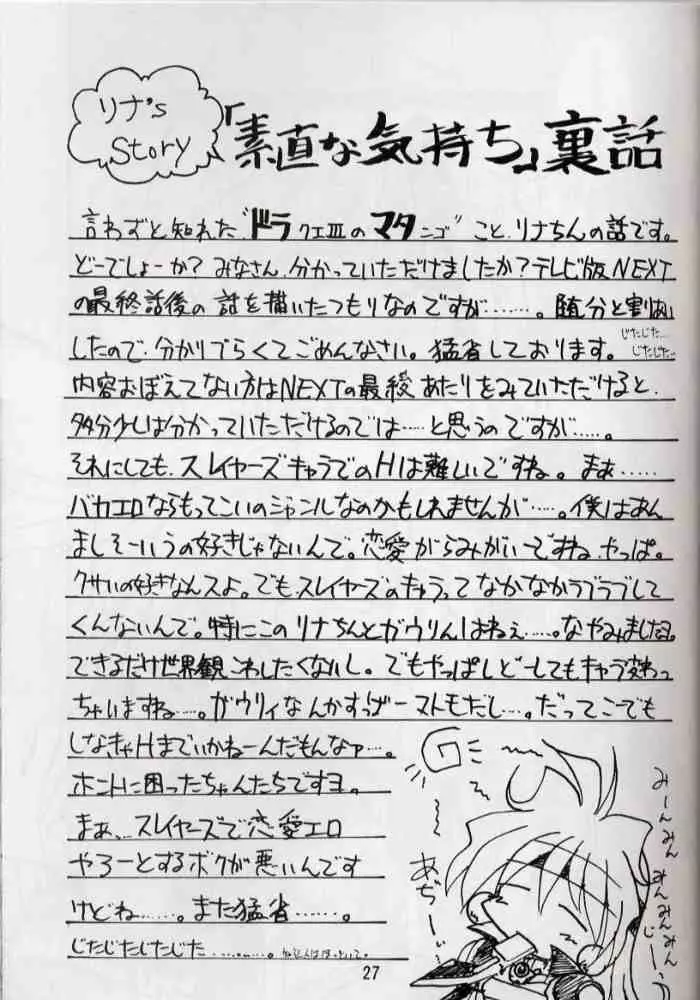 リナ's
Story
「素直な気持ち」裏話
言わずと知れた"ドラクエⅢのマタンゴ"こと、リナちんの話です。
どーでしょーか？みなさん、分かっていただけましたか？テレビ版NEXT
の最終話後の話を描いたつもりなのですが……。随分と割愛
したので、分かりづらくてごめんなさい。猛省しております。じたじた…
じたじた…
内容おぼえてない方はNEXTの最終あたりをみていただけると、
多分少しは分かっていただけるのでは…と思うのですが…。
それにしても、スレイヤーズキャラでのHは難しいですね。まぁ……
バカエロならもってこいのジャンルなのかもしれませんが…。僕はあん
ましそーいうの好きじゃないんで。恋愛がらみがいーですね、やっぱ。
クサいの好きなんスよ。でもスレイヤーズのキャラってなかなかラブラブして
くんないんで。特にこのリナちんとガウりんはねぇ……。なやみました。
できるだけ世界観こわしたくないし。でもやっぱしどーしてもキャラ変わっ
ちゃいますね……。ガウリィなんかすっげーマトモだし…。だってこーでも
しなきゃHまでいかねーんだもんなァ…。
ホントに困ったちゃんたちですヨ。
まぁ、スレイヤーズで恋愛エロ
やろーとするボクが悪いんです
けどね……。また猛省……。
じたじたじたじた………
G
あぢーいぃ
みーんみん
みんみんみん
じーー
27